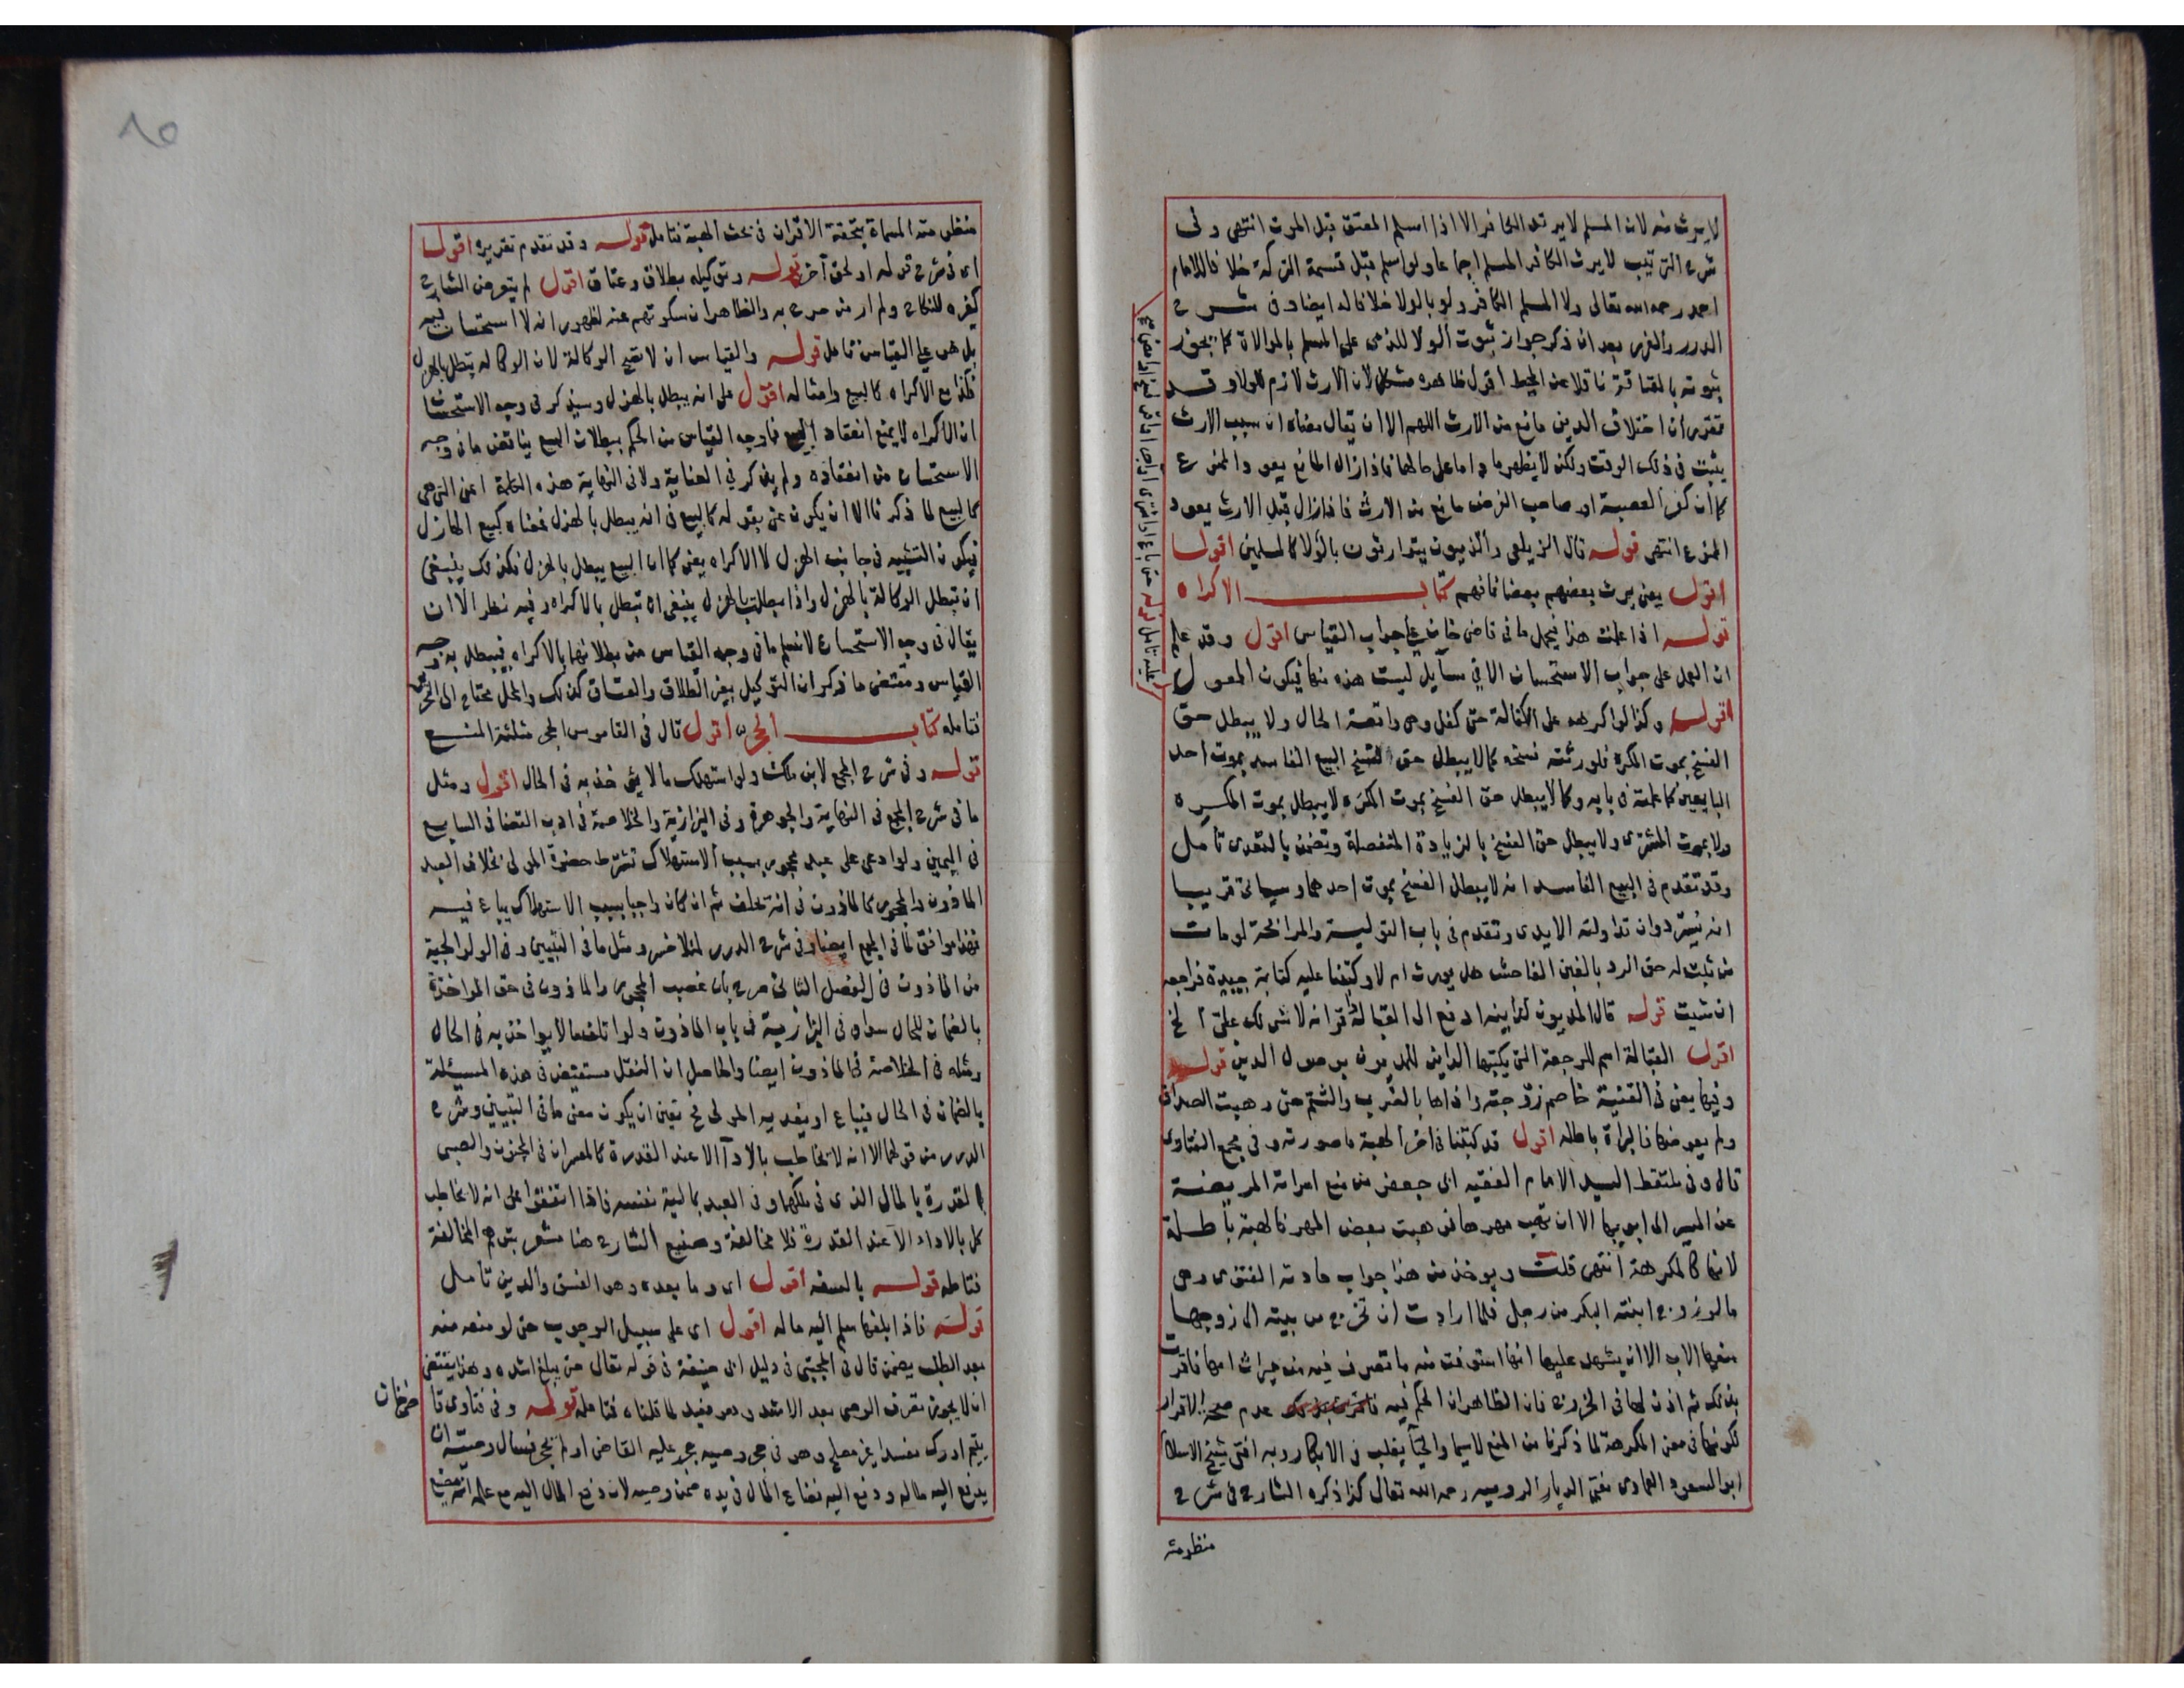 لا يرث منه لان المسلم لا يرثه الكافر الا اذا اسلم المعتق قبل الموت انتهى وفى
شرح الترتيب لا يرث الكافر المسلم اجماعا ولو اسلم قبل قسمة التركة خلافا للامام
احمد رحمه الله تعالى ولا المسلم الكافر ولو بالولا خلافا له ايضا وفى شرح
الدرر والغرر بعد ان ذكر جواز ثبوت الولا للذمى على المسلم بالموالاة كما يجوز
ثبوته بالعتاقة ناقلا عن المحيط اقول ظاهره مشكل لان الارث لازم للولا وقد
تقرر ان اختلاف الدين مانع من الارث اللهم الا ان يقال معناه ان سبب الارث
يثبت فى ذلك الوقت ولكن لا يظهر ما داما على حالهما فاذا زال المانع يعود الممنوع
كما ان كفر العصبة او صاحب الفرض مانع من الارث فاذا زال قبل الارث يعود
الممنوع انتهى قوله قال الزيلعى والذميون يتوارثون بالولا كالمسلمين اقول
اقول يعنى يرث بعضهم بعضا فافهم كتاب الاكراه
قوله اذا علمت هذا فيحمل ما فى قاضى خان على جواب القياس اقول وقد علم
ان العمل على جواب الاستحسان الا فى مسايل ليست هذه منها فيكون المعول
اقول وكذا لو اكره على الكفالة حتى كفل وهى واقعة الحال ولا يبطل حق
الفسخ بموت المكره فلورثته فسخه كما لا يبطل حق فسخ البيع الفاسد بموت احد
البايعين كما علمته فى بابه وكما لا يبطل حق الفسخ بموت المكره لا يبطل بموت المكره
ولا بموت المشترى ولا يبطل حق الفسخ بالزيادة المنفصلة وتضمن بالتعدى تامل
وقد تقدم فى البيع الفاسد انه لا يبطل الفسخ بموت احدهما وسياتى قريبا
انه يسترد وان تداولته الايدى وتقدم فى باب التولية والمرابحة لو مات
من ثبت له حق الرد بالغبن الفاحش هل يورث ام لا وكتبنا عليه كتابة جيدة فراجعه
ان شيت قوله قال المديون لداينه ادفع الى القبالة واقر انه لا شى لك على الخ
اقول القبالة اسم للرجعة التى يكتبها الداين للمديون بوصول الدين قوله
وفيها يعنى فى القنية خاصم زوجته واذاها بالضرب والشتم حتى وهبت الصداق
ولم يعوضها فالبراة باطله اقول قد كتبنا فى اخر الهبة ما صورته وفى مجمع الفتاوى
قال وفى ملتقط السيد الامام الفقيه ابى جعفر من منع امراته المريضة
عن المسير الى ابويها الا ان تهب مهرها فوهبت بعض المهر فالهبة باطلة
لانها كالمكرهة انتهى قلت ويوخذ من هذا جواب حادثة الفتوى وهى
ما لو زوج ابنته البكر من رجل فلما ارادت ان تخرج من بيته الى زوجها
منعها الاب الا ان يشهد عليها انها استوفت منه ما تصرف فيه من ميراث امها فاقرت
بذلك ثم اذن لها فى الخروج فان الظاهر ان الحكم فيه عدم صحة الاقرار
لكونها فى معنى المكرهة لما ذكرنا من المنع لا سيما والحيا يغلب فى الابكار وبه افتى شيخ الاسلام
ابو السعود العمادى مفتى الديار الرومية رحمه الله تعالى كذا ذكره الشارح فى شرح
منظومته
منظومته المسماة بتحفة الاقران فى بحث الهبة فتامل قوله وقد تقدم تقريره اقول
اى فى شرح قوله او لحق آخر قوله وتوكيله بطلاق وعتاق اقول لم يتعرض الشارح
كغيره للنكاح ولم ار من صرح به والظاهر ان سكوتهم عنه لظهور انه لا استحسان فيه
بل هو على القياس تامل قوله والقياس ان لا تصح الوكالة لان الوكالة تبطل بالهزل
فكذا مع الاكراه كالبيع وامثاله اقول على انه يبطل بالهزل وسيذكر فى وجه الاستحسان
ان الاكراه لا يمنع انعقاد البيع فما وجه القياس من الحكم ببطلان البيع يناقض ما فى وجه
الاستحسان من انعقاده ولم يذكر فى العناية ولا فى النهاية هذه الكلمة اعنى التى هى
كالبيع لما ذكر فالا ان يكون عنى بقوله كالبيع فى انه يبطل بالهزل فمعناه كبيع الهازل
فيكون التشبيه فى جانب الهزل لا الاكراه يعنى كما ان البيع يبطل بالهزل فكذلك ينبغى
ان تبطل الوكالة بالهزل واذا بطلت بالهزل ينبغى ان تبطل بالاكراه وفيه نظر الا ان
يقال فى وجه الاستحسان لا نسلم ما فى وجه القياس من بطلانها بالاكراه فيبطل به وجه
القياس ومقتضى ما ذكر ان التوكيل بغير الطلاق والعتاق كذلك والمحل محتاج الى التحرير
فتامله كتاب الحجر اقول قال فى القاموس الحجر مثلثة المنع
قوله وفى شرح المجمع لابن ملك ولو استهلك مالا يوخذ به فى الحال اقول ومثل
ما فى شرح المجمع فى النهاية والجوهرة وفى البزازية والخلاصة فى ادب القضا فى السابع
فى اليمين ولو ادعى على عبد محجور بسبب الاستهلاك تشترط حضرة المولى بخلاف العبد
الماذون والمحجور كالماذون فى انه يحلف ثم ان كان واجبا بسبب الاستهلاك يباع فيه
فهذا موافق لما فى المجمع ايضا وفى شرح الدرر لمنلا خسرو مثل ما فى التبيين وفى الولوالجية
من الماذون فى الفصل الثانى صرح بان غصب المحجور والماذون فى حق المواخذة
بالضمان للحال سواء فى البزازية فى باب الماذون ولو اتلف مالا يواخذ به فى الحال
ومثله فى الخلاصة فى الماذون ايضا والحاصل ان النقل مستفيض فى هذه المسئلة
بالضمان فى الحال فيباع او يفديه المولى فح تعين ان يكون معنى ما فى التبيين وشرح
الدرر من قولهما الا انه لا يخاطب بالاداء الا عند القدرة كالمعسر ان فى المجنون والصبى
القدرة بالمال الذى فى ملكهما وفى العبد بمالية نفسه فاذا اتفقوا على انه لا يخاطب
كل بالاداء الا عند القدرة فلا مخالفة وصنيع الشارح هنا مشعر بتوهم المخالفة
فتامله قوله بالسفه اقول اى وما بعده وهو الفسق والدين تامل
قوله فاذا بلغها سلم اليه ماله اقول اى على سبيل الوجوب حتى لو منعه منه
بعد الطلب يضمن قال فى المجتبى فى دليل ابى حنيفة فى قوله تعالى حتى يبلغ اشده وهذا يقتضى
ان لا يجوز تصرف الوصى بعد الاشد وهو مفيد لما قلناه فتامله قوله وفى فتاوى قا
ضى خان
يتيم ادرك مفسدا غير مصلح وهو فى حجر وصيه حجر عليه القاضى او لم يحجر فسال وصيه ان
يدفع اليه ماله ودفع اليه فضاع المال فى يده ضمن وصيه لان دفع المال اليه مع علمه انه مضيع
٨٥